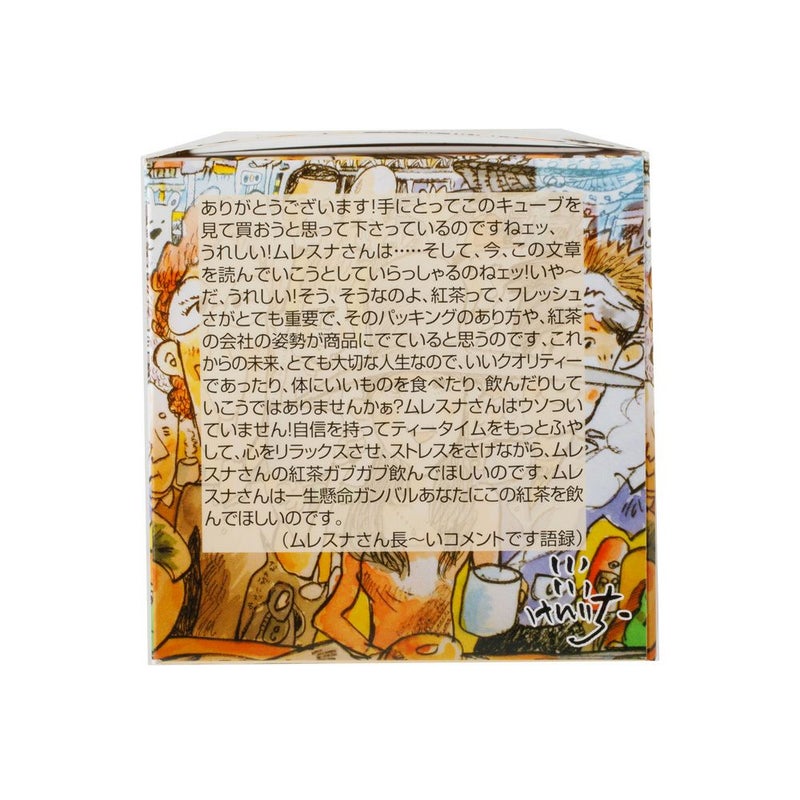 ありがとうございます!手にとってこのキューブを
見て買おうと思って下さっているのですねェッ、
うれしい!ムレスナさんは‥‥‥そして、今、この文章
を読んでいこうとしていらっしゃるのねェッ!いや〜
だ、うれしい!そう、そうなのよ、紅茶って、フレッシュ
さがとても重要で、そのパッキングのあり方や、紅茶
の会社の姿勢が商品にでていると思うのです、これ
からの未来、とても大切な人生なので、いいクオリティー
であったり、体にいいものを食べたり、飲んだりして
いこうではありませんかぁ?ムレスナさんはウソつい
ていません!自信を持ってティータイムをもっとふや
して、心をリラックスさせ、ストレスをさけながら、ムレ
スナさんの紅茶ガブガブ飲んでほしいのです、ムレ
スナさんは一生懸命ガンバルあなたにこの紅茶を飲
んでほしいのです。
(ムレスナさん長〜いコメントです語録)